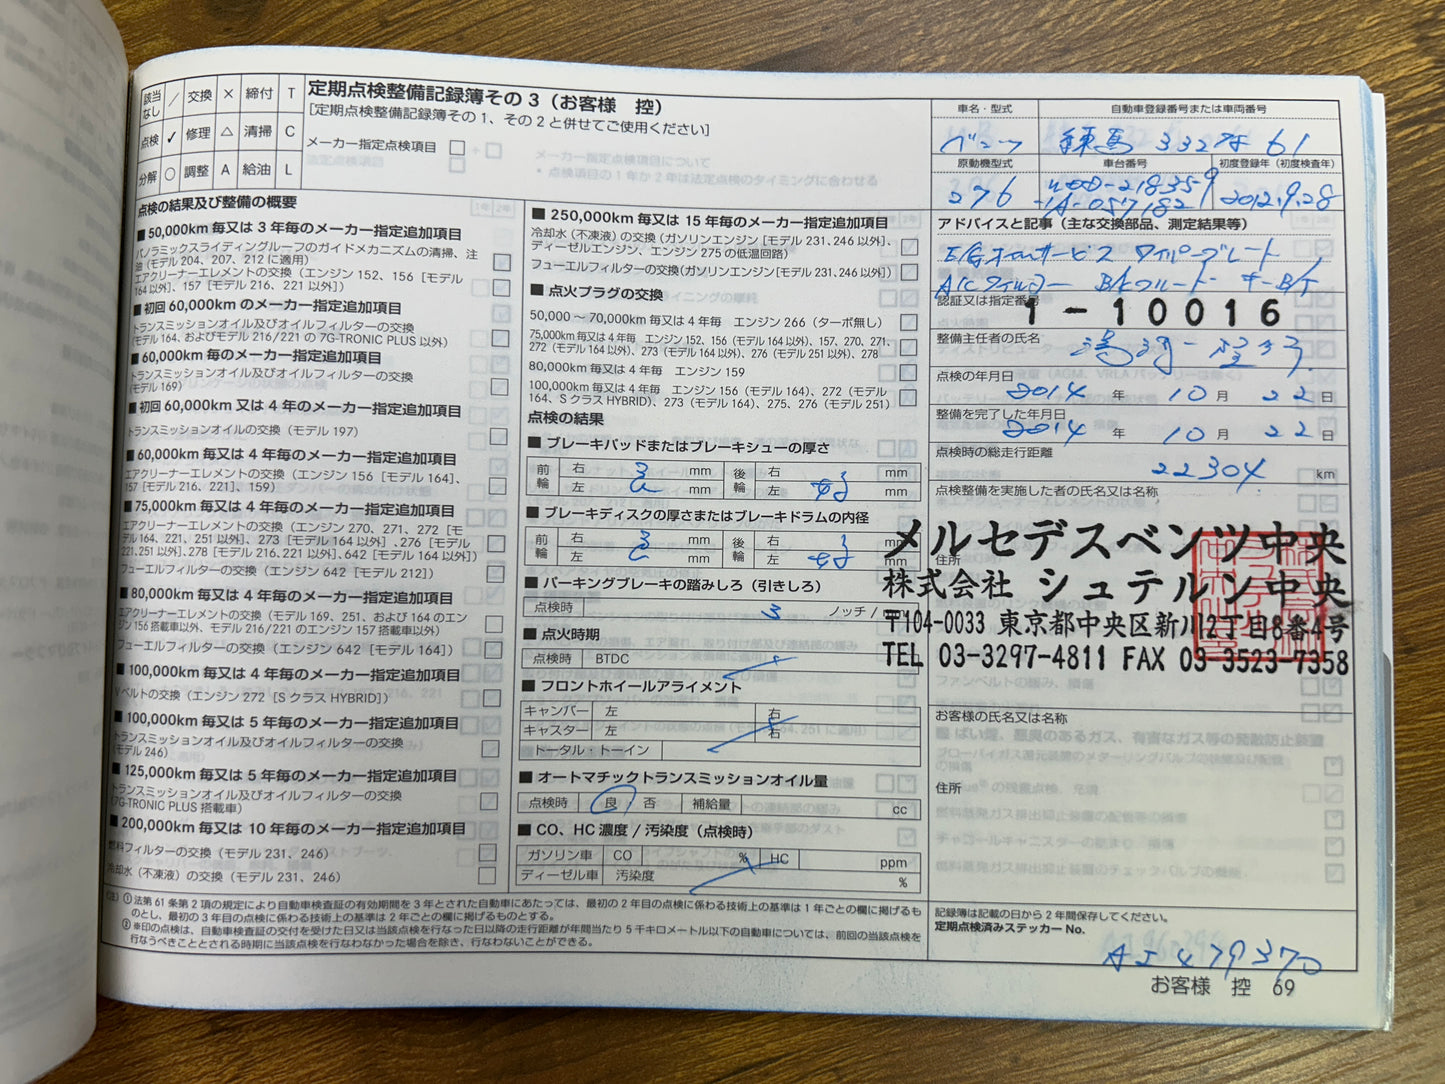 該当なし ／ 交換 × 締付 T
点検 ✓ 修理 △ 清掃 C
分解 ○ 調整 A 給油 L
定期点検整備記録簿その3（お客様　控）
[定期点検整備記録簿その1、その2と併せてご使用ください]
メーカー指定点検項目 □
点検の結果及び整備の概要
■ 50,000km 毎又は 3 年毎のメーカー指定追加項目
パノラミックスライディングルーフのガイドメカニズムの清掃、注
油（モデル 204、207、212 に適用）
エアクリーナーエレメントの交換（エンジン 152、156［モデル
164 以外］、157［モデル 216、221 以外］）
■ 初回 60,000km のメーカー指定追加項目
トランスミッションオイル及びオイルフィルターの交換
（モデル 164、およびモデル 216/221 の 7G-TRONIC PLUS 以外）
■ 60,000km 毎のメーカー指定追加項目
トランスミッションオイル及びオイルフィルターの交換
（モデル 169）
■ 初回 60,000km 又は 4 年のメーカー指定追加項目
トランスミッションオイルの交換（モデル 197）
■ 60,000km 又は 4 年毎のメーカー指定追加項目
エアクリーナーエレメントの交換（エンジン 156［モデル 164］、
157［モデル 216、221］、159）
■ 75,000km 毎又は 4 年毎のメーカー指定追加項目
エアクリーナーエレメントの交換（エンジン 270、271、272［モ
デル 164、221、251 以外］、273［モデル 164 以外］、276［モデル
221、251 以外］、278［モデル 216、221 以外］、642［モデル 164 以外］）
フューエルフィルターの交換（エンジン 642［モデル 212］）
■ 80,000km 毎又は 4 年毎のメーカー指定追加項目
エアクリーナーエレメントの交換（モデル 169、251、および 164 のエン
ジン 156 搭載車以外、モデル 216/221 のエンジン 157 搭載車以外）
フューエルフィルターの交換（エンジン 642［モデル 164］）
■ 100,000km 毎又は 4 年毎のメーカー指定追加項目
V ベルトの交換（エンジン 272［S クラス HYBRID］）
■ 100,000km 毎又は 5 年毎のメーカー指定追加項目
トランスミッションオイル及びオイルフィルターの交換
（モデル 246）
■ 125,000km 毎又は 5 年毎のメーカー指定追加項目
トランスミッションオイル及びオイルフィルターの交換
（7G-TRONIC PLUS 搭載車）
■ 200,000km 毎又は 10 年毎のメーカー指定追加項目
燃料フィルターの交換（モデル 231、246）
冷却水（不凍液）の交換（モデル 231、246）
■ 250,000km 毎又は 15 年毎のメーカー指定追加項目
冷却水（不凍液）の交換（ガソリンエンジン［モデル 231、246 以外］、
ディーゼルエンジン、エンジン 275 の低温回路）
フューエルフィルターの交換（ガソリンエンジン［モデル 231、246 以外］）
■ 点火プラグの交換
50,000 ～ 70,000km 毎又は 4 年毎　エンジン 266（ターボ無し）
75,000km 毎又は 4 年毎　エンジン 152、156（モデル 164 以外）、157、270、271、
272（モデル 164 以外）、273（モデル 164 以外）、276（モデル 251 以外）、278
80,000km 毎又は 4 年毎　エンジン 159
100,000km 毎又は 4 年毎　エンジン 156（モデル 164）、272（モデル
164、S クラス HYBRID）、273（モデル 164）、275、276（モデル 251）
点検の結果
■ ブレーキパッドまたはブレーキシューの厚さ
前輪 右 mm 後輪 右 mm
左 mm 左 mm
■ ブレーキディスクの厚さまたはブレーキドラムの内径
前輪 右 mm 後輪 右 mm
左 mm 左 mm
■ パーキングブレーキの踏みしろ（引きしろ）
点検時 3 ノッチ /
■ 点火時期
点検時 BTDC
■ フロントホイールアライメント
キャンバー 左 右
キャスター 左 右
トータル・トーイン
■ オートマチックトランスミッションオイル量
点検時 良 否 補給量 cc
■ CO、HC 濃度 / 汚染度（点検時）
ガソリン車 CO % HC ppm
ディーゼル車 汚染度 %
（注）① 法第 61 条第 2 項の規定により自動車検査証の有効期間を 3 年とされた自動車にあたっては、最初の 2 年目の点検に係わる技術上の基準は 1 年ごとの欄に掲げるも
のとし、最初の 3 年目の点検に係わる技術上の基準は 2 年ごとの欄に掲げるものとする。
② ※印の点検は、自動車検査証の交付を受けた日又は当該点検を行なった日以降の走行距離が年間当たり 5 千キロメートル以下の自動車については、前回の当該点検を
行なうべきこととされる時期に当該点検を行なわなかった場合を除き、行なわないことができる。
車名・型式 自動車登録番号または車両番号
ベンツ 練馬 332 61
原動機型式 車台番号 初度登録年（初度検査年）
276 WDD-218359 2012.9.28
1A-057182
アドバイスと記事（主な交換部品、測定結果等）
E/Gオイルサービス ワイパーブレード
A/Cフィルター B/Kフルード
認証又は指定番号
1-10016
整備主任者の氏名
点検の年月日
2014 年 10 月 22 日
整備を完了した年月日
2014 年 10 月 22 日
点検時の総走行距離
22304 km
点検整備を実施した者の氏名又は名称
メルセデスベンツ中央
住所
株式会社 シュテルン中央
〒104-0033 東京都中央区新川2丁目8番4号
TEL 03-3297-4811 FAX 03-3523-7358
お客様の氏名又は名称
住所
記録簿は記載の日から 2 年間保存してください。
定期点検済みステッカー No.
AJ 479370
お客様　控　69